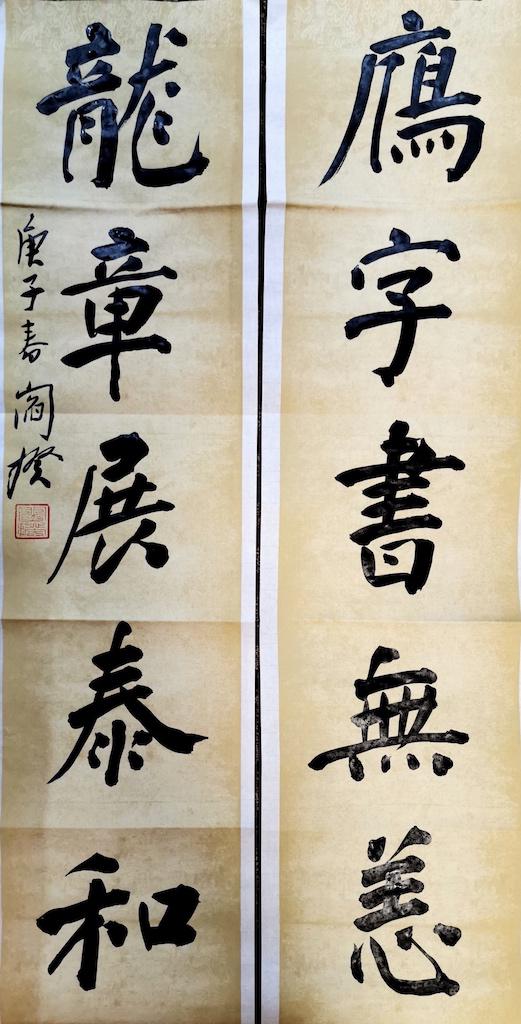 鴈字書無恙
龍章展泰和
庚子春